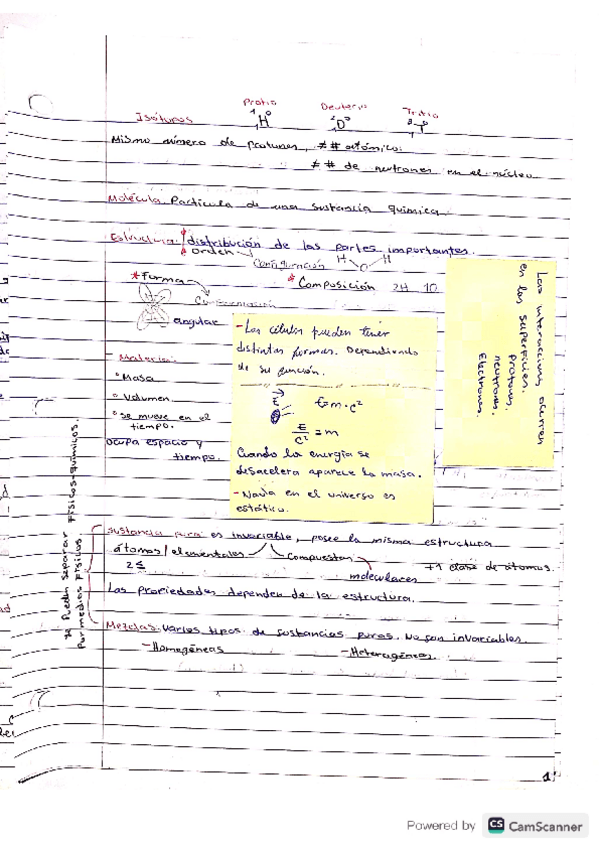 Protio Deuterio Tritio
Isótopos ¹H⁰ ²D 3T
Mismo número de protones, ≠ # atómico.
≠ # de neutrones en el núcleo
Molécula Partícula de una sustancia química
Estructura: distribución de las partes importantes.
* orden
Configuración H O H
* Forma
* Composición 2H 1O
angular
- Las células pueden tener
distintas formas. Dependiendo
de su función.
E E=m.c²
E/c² = m
Cuando la energía se
desacelera aparece la masa.
- Nada en el universo es
estático.
Las interacciones ocurren
en las superficies.
Protones.
neutrones.
Electrones.
- Materia:
° Masa
° Volumen
° Se mueve en el
tiempo.
ocupa espacio y
tiempo.
físicos-químicos.
se pueden separar
por medios físicos.
Sustancia pura: es invariable, posee la misma estructura
átomos/elementales compuestas +1 clase de átomos.
2 ≤ moleculares
Las propiedades dependen de la estructura.
Mezclas: Varios tipos de sustancias puras. No son invariables
- Homogéneas - Heterogéneas.
1
Powered by CS CamScanner